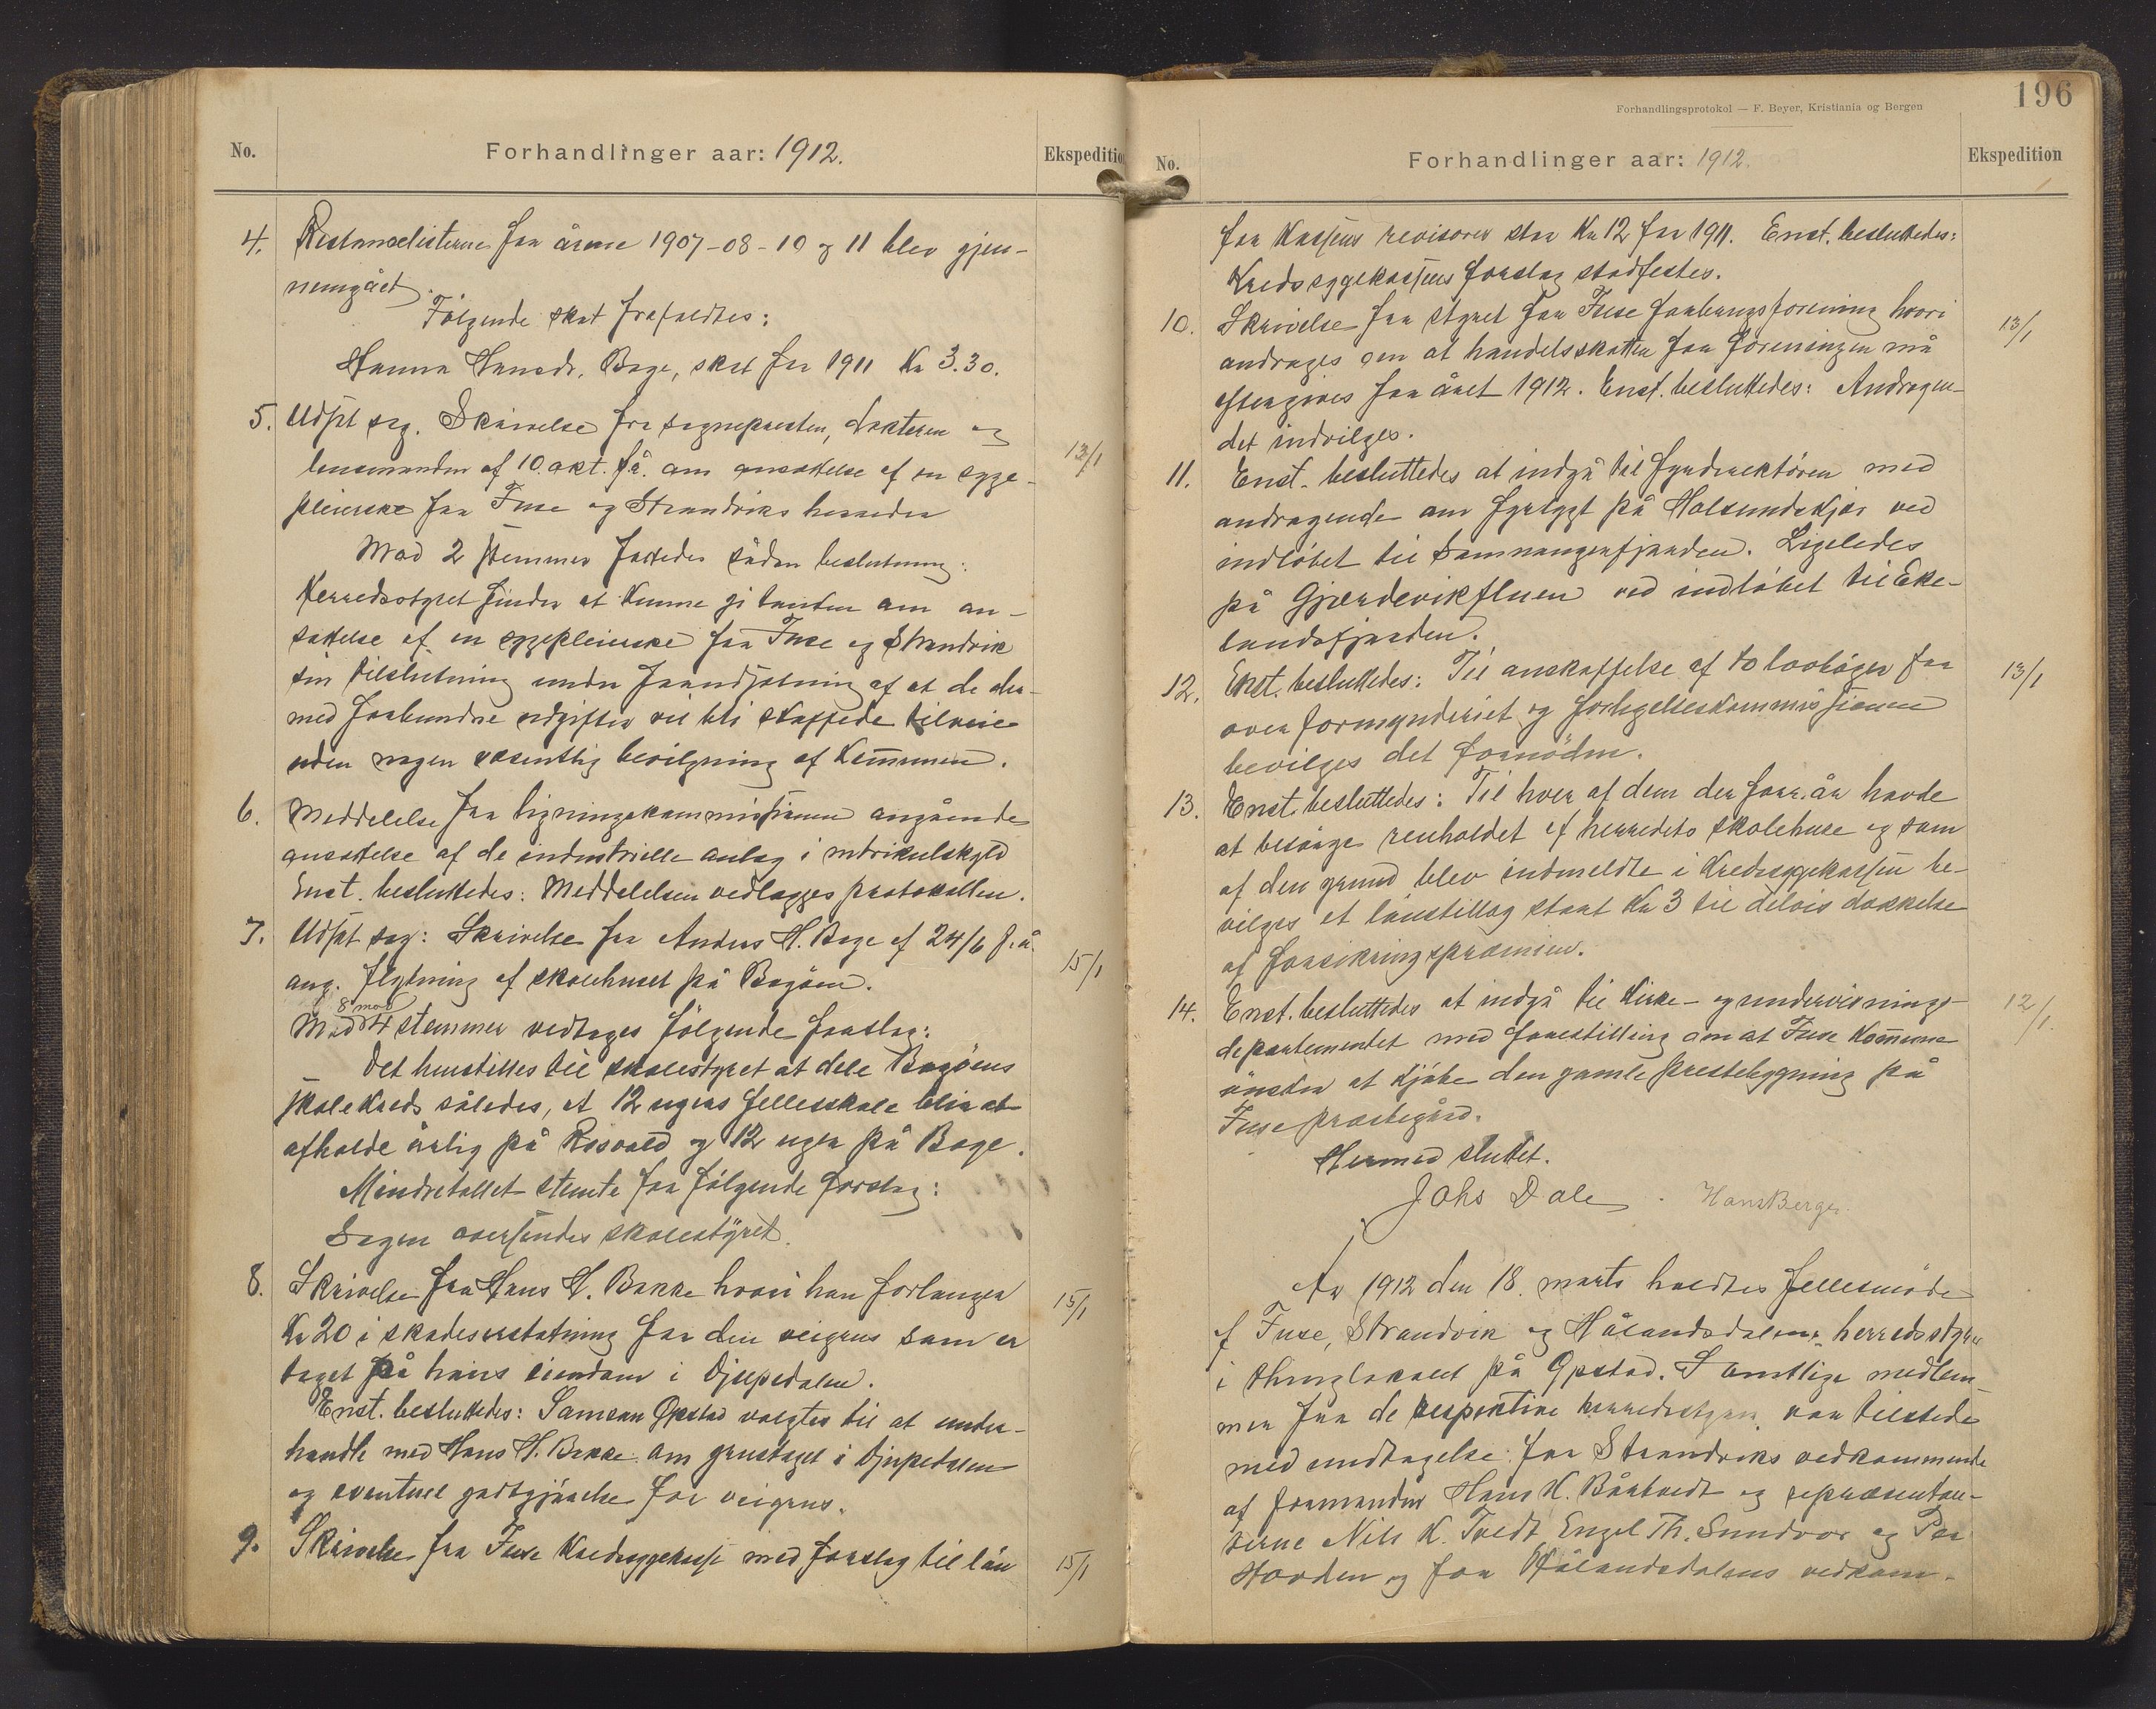 No.
Forhandlinger aar: 1912.
Ekspedition
4. Restanselisterne for årene 1907-08-10 og 11 blev gjen-
nemgået.
Følgende skat frafaldtes:
Hanna Hansdr. Bage, skat for 1911 Kr 3.30.
5. Udsat sag. Skrivelse fra sognepresten, doktoren og
lensmanden af 10. okt. f.å. om ansættelse af en syge-
pleierske for Fuse og Strandviks herreder
13/1
Mod 2 stemmer fattedes sådan beslutning:
Herredsstyret finder at kunne gi tanken om an-
sættelse af en sygepleierske for Fuse og Strandvik
sin tilslutning under forudsætning af at de der-
med forbundne udgifter vil bli skaffede tilveie
uden nogen væsentlig bevilgning af Kommunen.
6. Meddelelse fra ligningskommissionen angående
ansættelse af de industrielle anlæg i matrikulskyld
Enst. besluttedes: Meddelelsen vedlægges protokollen.
7. Udsat sag: Skrivelse fra Anders H. Bage af 24/6 f.å.
ang. flytning af skolehuset på Bogøen.
15/1
Med 8 mod 4 stemmer vedtages følgende forslag:
Det henstilles til skolestyret at dele Bogøens
skolekreds således, at 12 ugers fellesskole blir at
afholde årlig på Rosvold og 12 uger på Bage.
Mindretallet stemte for følgende forslag:
Sagen oversendes skolestyret.
8. Skrivelse fra Hans H. Bakke hvori han forlanger
Kr 20 i skadeserstatning for den veigrus som er
taget på hans eiendom i Djupedalen.
15/1
Enst. besluttedes: Samson Opstad valgtes til at under-
handle med Hans H. Bakke om grustaget i Djupedalen
og eventuel godtgjørelse for veigrus.
9. Skrivelse fra Fuse Kredssygekasse med forslag til løn
15/1
Forhandlingsprotokol — F. Beyer, Kristiania og Bergen
196
No.
Forhandlinger aar: 1912.
Ekspedition
for kassens revisorer stor Kr 12 for 1911. Enst. besluttedes:
Kredssygekassens forslag stadfestes.
10. Skrivelse fra styret for Fuse forbrugsforening hvori
andrages om at handelsskatten for foreningen må
eftergives for året 1912. Enst. besluttedes: Andragen-
det indvilges.
13/1
11. Enst. besluttedes at indgå til fyrdirektøren med
andragende om fyrlygt på Holsundskjær ved
indløbet til Samnangerfjorden. Ligeledes
på Gjærdevikfluen ved indløbet til Eke-
landsfjorden.
12. Enst. besluttedes: Til anskaffelse af to lovbøger for
overformynderiet og forligelseskommissionen
bevilges det fornødne.
13/1
13. Enst. besluttedes: Til hver af dem der forr. år havde
at besørge renholdet af herredets skolehuse og som
af den grund blev indmeldte i Kredssygekassen be-
vilges et lønstillæg stort Kr 3 til delvis dækkelse
af forsikringspræmien.
14. Enst. besluttedes at indgå til Kirke- og undervisnings-
departementet med forestilling om at Fuse Kommune
ønsker at kjøbe den gamle prestebygning på
Fuse prestegård.
12/1.
Hermed sluttet.
Johs Dale. Hans Berge.
År 1912 den 18. marts holdtes fellesmøde
af Fuse, Strandvik og Hålandsdalens herredsstyrer
i thinglokalet på Opstad. Samtlige medlem-
mer fra de respektive herredsstyrer var tilstede
med undtagelse for Strandviks vedkommende
af formanden Hans K. Bårtvedt og repræsentan-
terne Nils K. Tvedt, Engel Th. Sundvor og Per
Hovden og for Hålandsdalens vedkom-